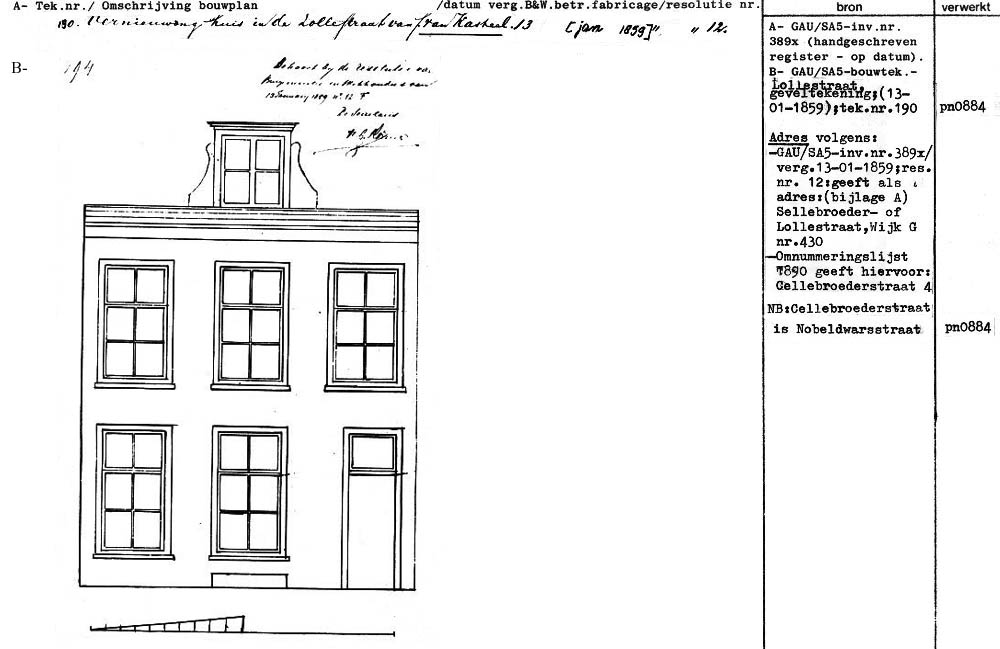 A- Tek.nr./ Omschrijving bouwplan /datum verg.B&W.betr.fabricage/resolutie nr.
190. Vernieuwing huis in de Lollestraat van J. van Kasteel. 13 [jan 1859]" " 12.
B- 194
Behoort bij de resolutie van
Burgemeester en Wethouders van
13 January 1859 No. 12 F
De
bron
verwerkt
A- GAU/SA5-inv.nr.
389x (handgeschreven
register - op datum).
B- GAU/SA5-bouwtek.-
Lollestraat,
geveltekening;(13-
01-1859);tek.nr.190 pn0884
Adres volgens:
-GAU/SA5-inv.nr.389x/
verg.13-01-1859;res.
nr. 12:geeft als
adres:(bijlage A)
Sellebroeder- of
Lollestraat,Wijk G
nr.430
-Omnummeringslijst
1890 geeft hiervoor:
Cellebroederstraat 4
NB:Cellebroederstraat
is Nobeldwarsstraat pn0884